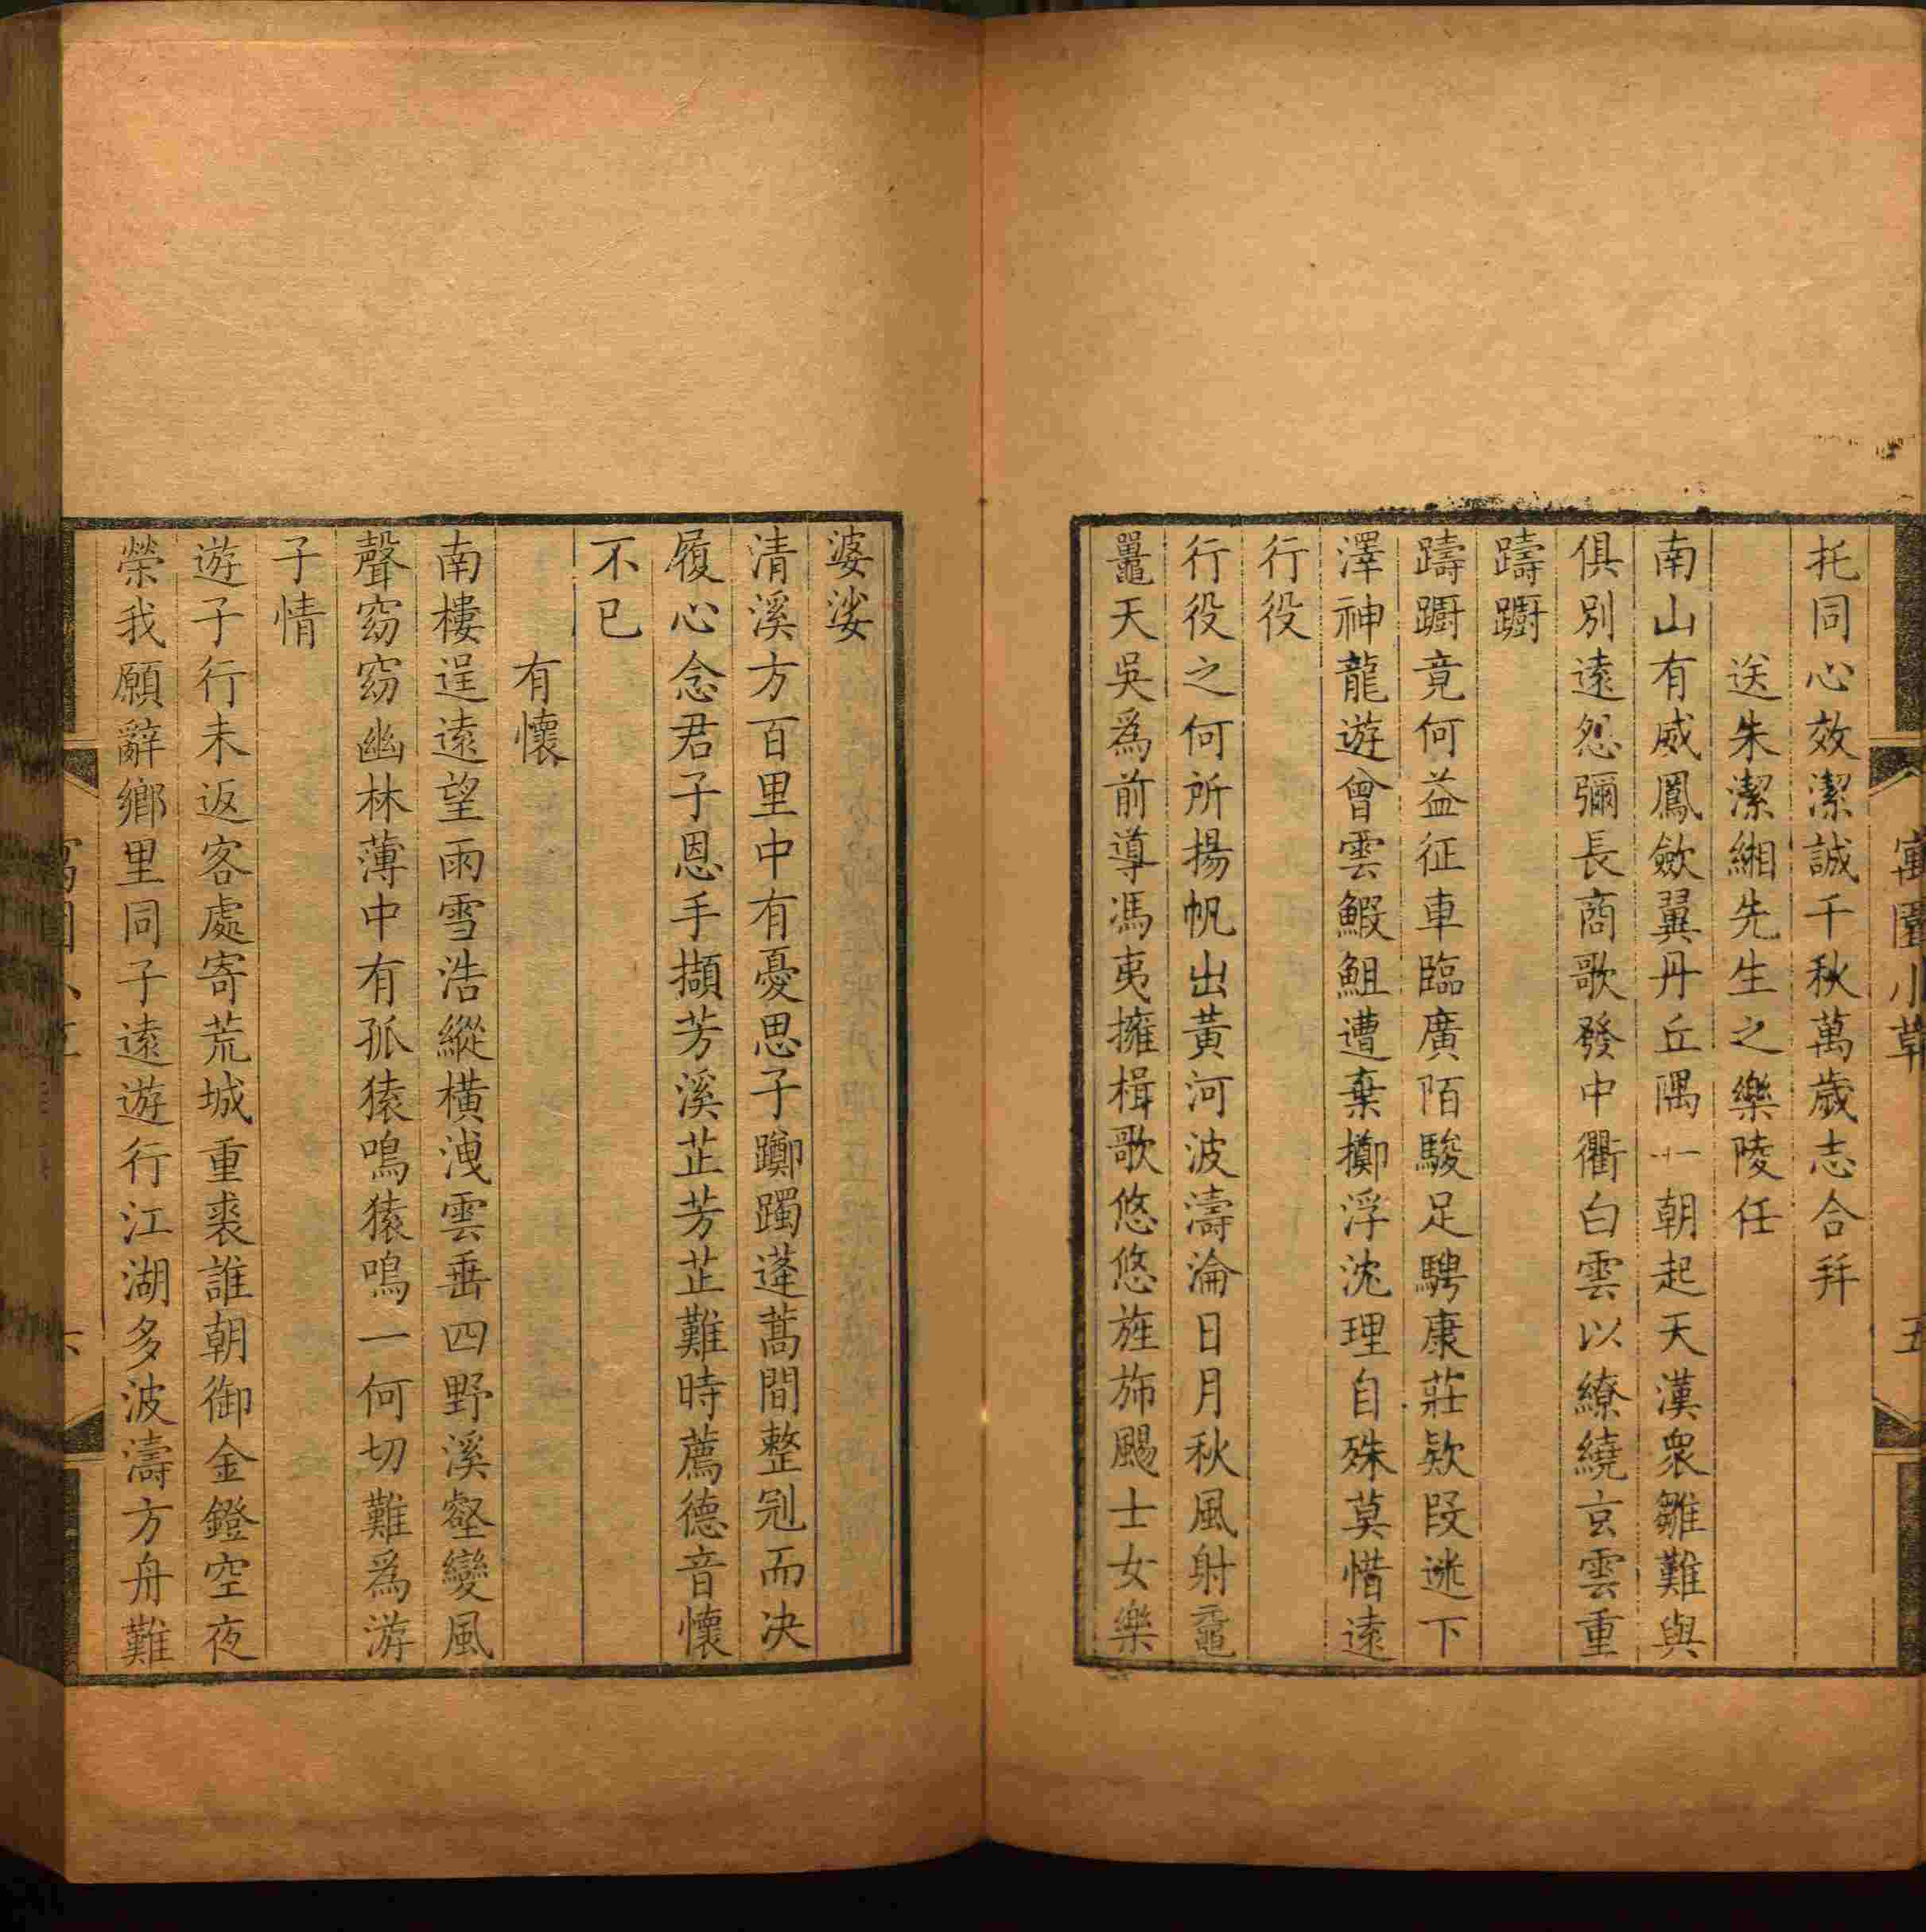 寓園小草 五
托同心效潔誠千秋萬歲志合拜
送朱潔緗先生之樂陵任
南山有威鳳歛翼丹丘隅一朝起天漢眾雛難與
俱別遠怨彌長商歌發中衢白雲以繚繞玄雲重
躊躕
躊躕竟何益征車臨廣陌駿足騁康莊欵段逃下
澤神龍遊曾雲鰕鉏遭棄擲浮沈理自殊莫惜遠
行役
行役之何所揚帆出黃河波濤淪日月秋風射黿
鼉天吳爲前導馮夷擁楫歌悠悠旌斾颺士女樂
婆娑
清溪方百里中有憂思子躑躅蓬蒿間整冠而决
履心念君子恩手擷芳溪芷芳芷難時薦德音懷
不已
有懷
南樓逞遠望雨雪浩縱橫洩雲垂四野溪壑變風
聲窈窈幽林薄中有孤猿鳴猿鳴一何切難爲游
子情
遊子行未返客處寄荒城重裘誰朝御金鐙空夜
榮我願辭鄉里同子遠遊行江湖多波濤方舟難